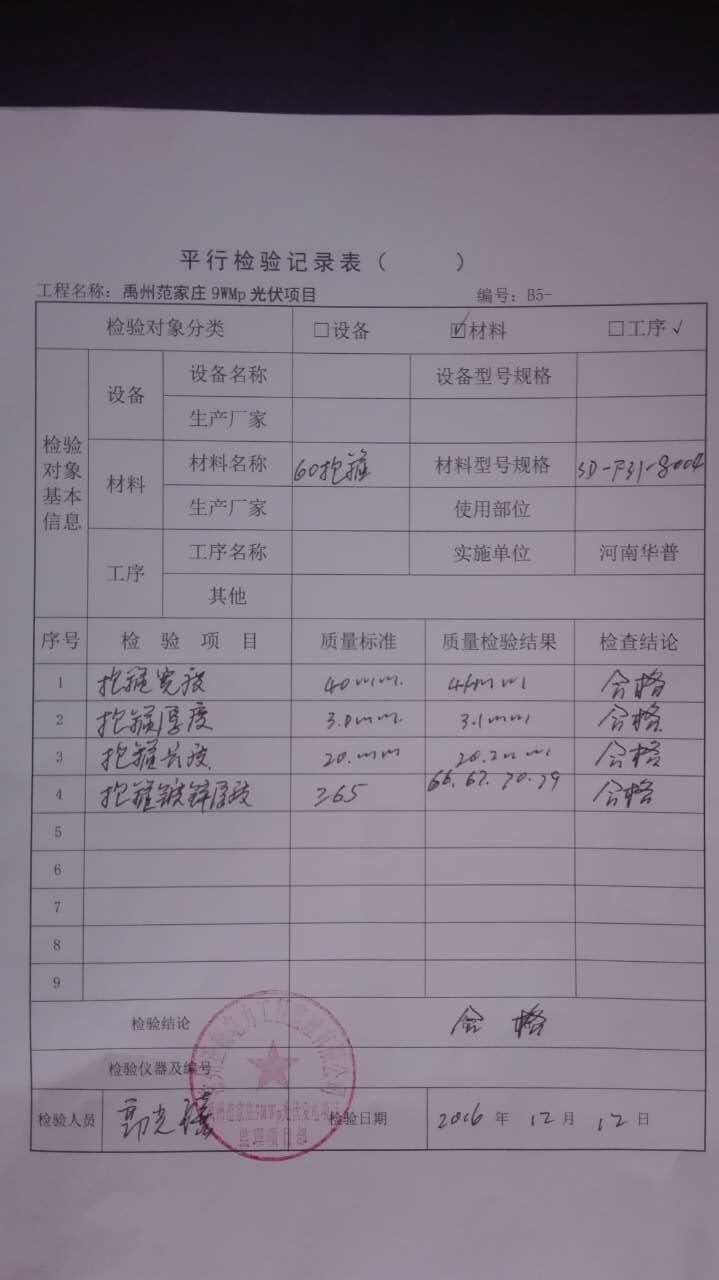 平行检验记录表（ ）
工程名称：禹州范家庄9WMp光伏项目 编号：B5-
检验对象分类 □设备 ☑材料 □工序√
检验对象基本信息
设备 设备名称 设备型号规格
生产厂家
材料 材料名称 60抱箍 材料型号规格 SD-F31-8004
生产厂家 使用部位
工序 工序名称 实施单位 河南华普
其他
序号 检验项目 质量标准 质量检验结果 检查结论
1 抱箍宽度 40mm. mm 合格
2 抱箍厚度 3.0mm. 3.1mm 合格
3 抱箍长度 20.mm 20.2mm 合格
4 抱箍镀锌厚度 ≥65 66.67.70.79 合格
5
6
7
8
9
检验结论 合格
检验仪器及编号
检验人员 郭 检验日期 2016年12月12日
监理项目部